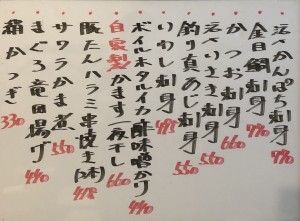 活〆かんぱち刺身 770
金目鯛刺身 770
かつお刺身 660
活〆いさき刺身 550
釣り真あじ刺身 550
いわし刺身 495
ボイルホタルイカ酢味噌かけ 440
自家製かます一夜干し 660
豚たんハラミ串焼き(2本) 495
サワラかま煮 550
まぐろ竜田揚げ 440
栃かっぎ 330